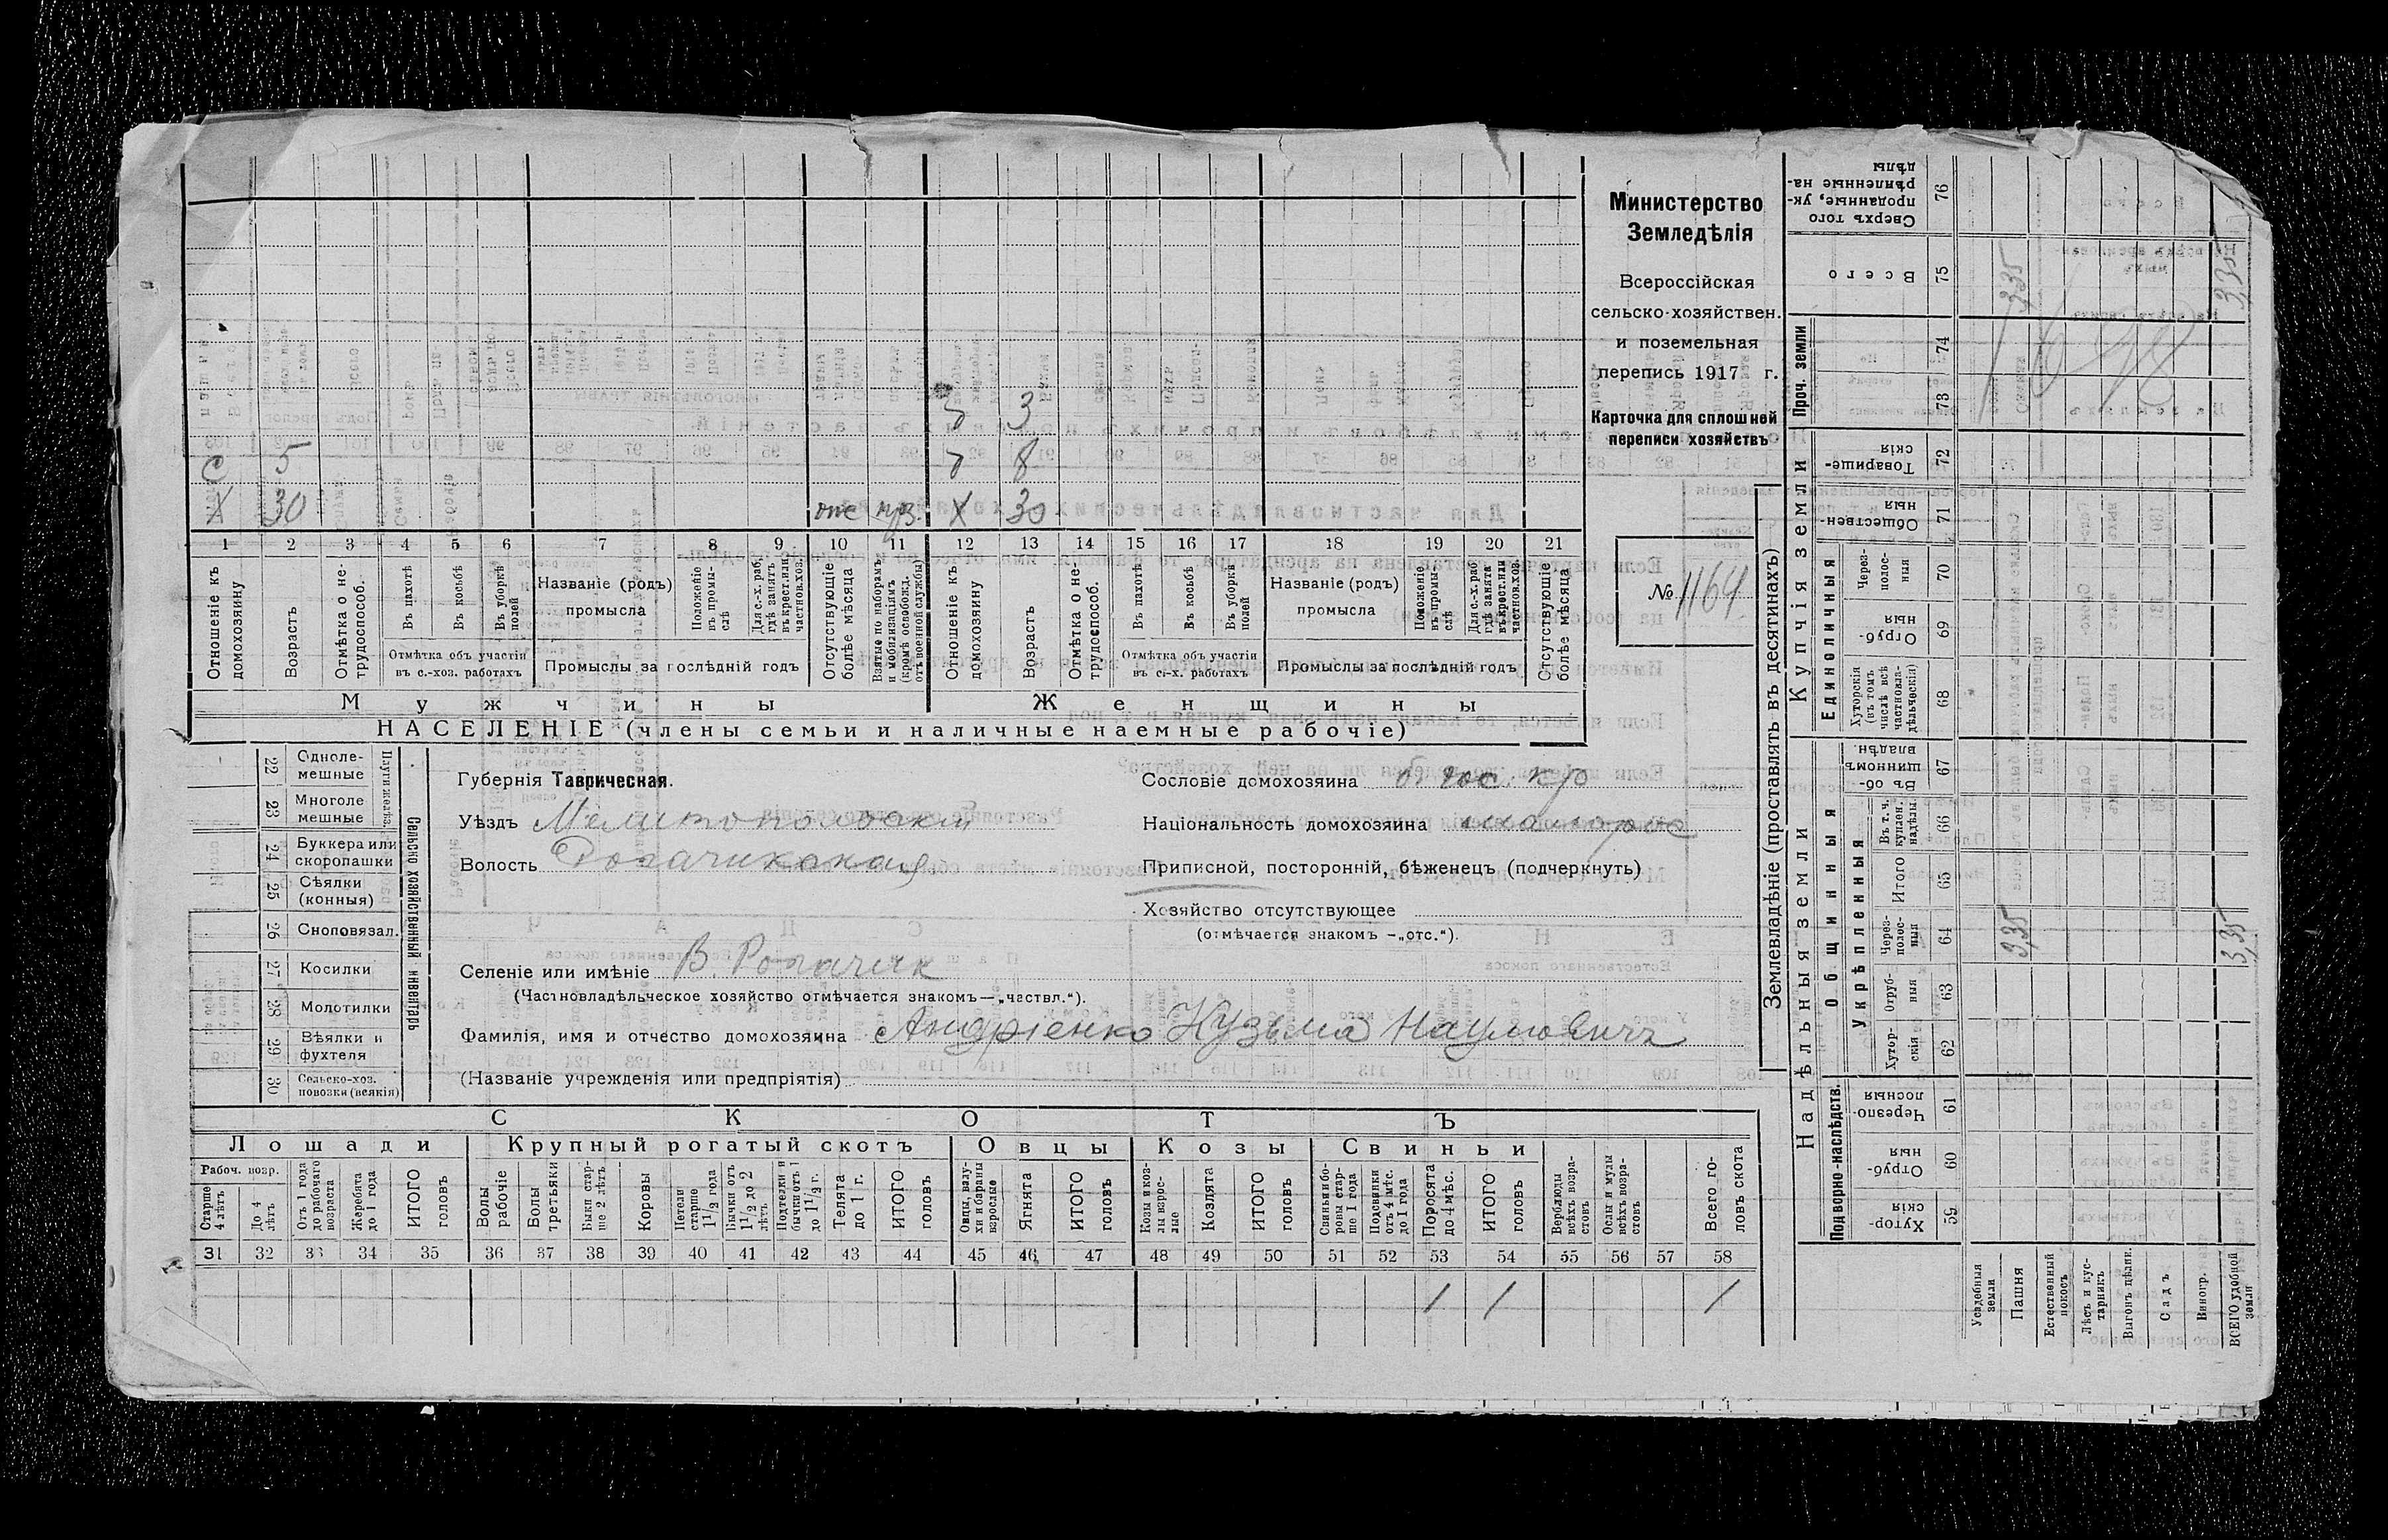 Министерство
Земледѣлія
Всероссійская
сельско-хозяйствен.
и поземельная
перепись 1917 г.
Карточка для сплошней
переписи хозяйствъ
№ 1164
З 3
8
С 5
Х 30 отс Х 30
1 2 3 4 5 6 7 8 9 10 11 12 13 14 15 16 17 18 19 20 21
Отношеніе къ домохозяину
Возрастъ
Отмѣтка о не-трудоспособ.
Въ пахотѣ
Въ косьбѣ
Въ уборкѣ полей
Отмѣтка объ участіи
въ с.-хоз. работахъ
Названіе (родъ)
промысла
Положеніе въ промы-слѣ
Для с.-х. раб. гдѣ занятъ въ крест. или частнов. хоз.
Промыслы за послѣдній годъ
Отсутствующіе болѣе мѣсяца
Взятые по наборамъ и мобилизаціямъ (кромѣ освобожд. отъ военной службы)
Отношеніе къ домохозяину
Возрастъ
Отмѣтка о не-трудоспособ.
Въ пахотѣ
Въ косьбѣ
Въ уборкѣ полей
Отмѣтка объ участіи
въ с.-х. работахъ
Названіе (родъ)
промысла
Положеніе въ промы-слѣ
Для с.-х. раб. гдѣ занята въ крест. или частнов. хоз.
Промыслы за послѣдній годъ
Отсутствующіе болѣе мѣсяца
Мужчины Женщины
НАСЕЛЕНІЕ (члены семьи и наличные наемные рабочіе)
Сельско хозяйственный инвентарь
Плуги желѣз.
22 Одноле-мешные
23 Многоле мешные
24 Буккера или скоропашки
25 Сѣялки (конныя)
26 Сноповязал.
27 Косилки
28 Молотилки
29 Вѣялки и фухтеля
30 Сельско-хоз. повозки (всякія)
Губернія Таврическая.
Уѣздъ Мелитопольскій
Волость Рогачикская
Селеніе или имѣніе В. Рогачик
(Частновладѣльческое хозяйство отмѣчается знакомъ—„частвл.“).
Фамилія, имя и отчество домохозяина Андріенко Кузьма Наумовичъ
(Названіе учрежденія или предпріятія)
Сословіе домохозяина б. гос. кр
Національность домохозяина малорос
Приписной, посторонній, бѣженецъ (подчеркнуть)
Хозяйство отсутствующее
(отмѣчается знакомъ —„отс.“).
СКОТЪ
Лошади Крупный рогатый скотъ Овцы Козы Свиньи
Рабоч. возр.
Старше 4 лѣтъ
До 4 лѣтъ
Отъ 1 года до рабочаго возраста
Жеребята до 1 года
ИТОГО головъ
Волы рабочіе
Волы третьяки
Быки стар-ше 2 лѣтъ
Коровы
Нетели старше 1 1/2 года
Бычки отъ 1 1/2 до 2 лѣтъ
Подтелки и бычки отъ 1 до 1 1/2 г.
Телята до 1 г.
ИТОГО головъ
Овцы, валу-хи и бараны взрослые
Ягнята
ИТОГО головъ
Козы и коз-лы взрос-лые
Козлята
ИТОГО головъ
Свиньи и бо-ровы стар-ше 1 года
Подсвинки отъ 4 мѣс. до 1 года
Поросята до 4 мѣс.
ИТОГО головъ
Верблюды всѣхъ возра-стовъ
Ослы и мулы всѣхъ возра-стовъ
Всего го-ловъ скота
31 32 33 34 35 36 37 38 39 40 41 42 43 44 45 46 47 48 49 50 51 52 53 54 55 56 57 58
1 1 1
Землевладѣніе (проставлять въ десятинахъ)
Надѣльныя земли
Купчія земли
Проч. земли
Подворно-наслѣдств.
Общинныя
Укрѣпленныя
Единоличныя
Хутор-скія 59
Отруб-ныя 60
Черезпо-лосныя 61
Хутор-скія 62
Отруб-ныя 63
Через-полос-ныя 64 3,35 3,35
Итого 65
Въ т. ч. куплен. надѣлы. 66
Въ об-щинномъ владѣн. 67
Хуторскія (въ томъ числѣ всѣ частновла-дѣльческія) 68
Отруб-ныя 69
Через-полос-ныя 70
Обществен-ныя 71
Товарище-скія 72
73
74
Всего 75 3,35 3,35
Сверхъ того проданные, ук-рѣпленные на-дѣлы 76
Усадебныя земли
Пашня
Естественный покосъ
Лѣсъ и кус-тарникъ
Выгонъ цѣлин.
Садъ
Виногр.
ВСЕГО удобной земли